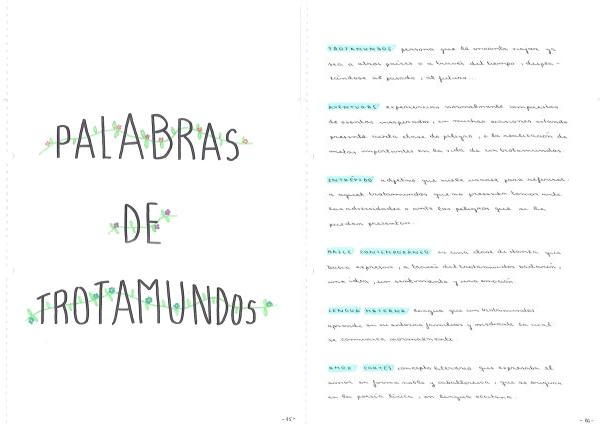 PALABRAS
DE
TROTAMUNDOS
-15-
TROTAMUNDOS persona que le encanta viajar ya
sea a otros países o a través del tiempo, despla-
zándose al pasado, al futuro...
AVENTURAS experiencias normalmente compuestas
de eventos inesperados, en muchas ocasiones estando
presente cierta clase de peligro, o la realización de
metas importantes en la vida de un trotamundos.
INTRÉPIDO adjetivo que suele usarse para referirse
a aquel trotamundos que no presenta temor ante
las adversidades o ante los peligros que se le
puedan presentar.
BAILE CONTEMPORÁNEO es una clase de danza que
busca expresar, a través del trotamundos bailarín,
una idea, un sentimiento y una emoción.
LENGUA MATERNA lengua que un trotamundos
aprende en su entorno familiar y mediante la cual
se comunica normalmente.
AMOR CORTÉS concepto literario que expresaba el
amor en forma noble y caballeresca, que se origina
en la poesía lírica, en lengua occitana.